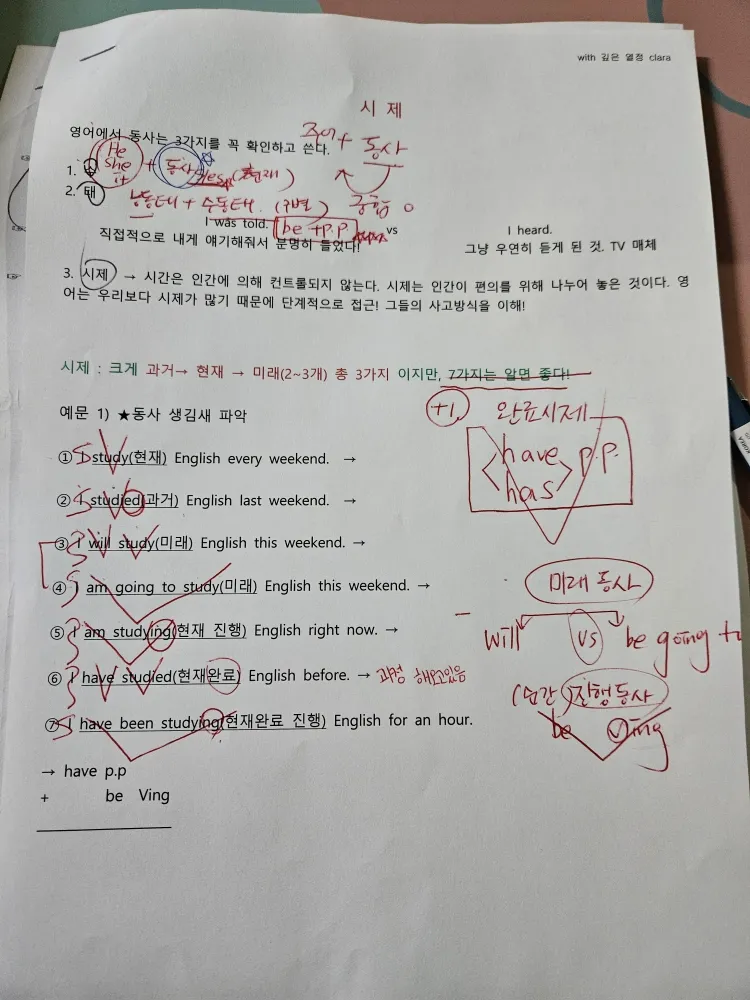 with 깊은 열정 clara
시 제
영어에서 동사는 3가지를 꼭 확인하고 쓴다.
주어 + 동사
He
she
it
1. 수 + 동사 es (현재)
2. 태
능동태 + 수동태. (구별) 궁합 o
I was told. be + p.p vs I heard.
직접적으로 내게 얘기해줘서 분명히 들었다! 그냥 우연히 듣게 된 것. TV 매체
3. 시제 → 시간은 인간에 의해 컨트롤되지 않는다. 시제는 인간이 편의를 위해 나누어 놓은 것이다. 영
어는 우리보다 시제가 많기 때문에 단계적으로 접근! 그들의 사고방식을 이해!
시제 : 크게 과거→ 현재 → 미래(2~3개) 총 3가지 이지만, 7가지는 알면 좋다!
예문 1) ★동사 생김새 파악
+1. 완료시제
have p.p.
has
① I study(현재) English every weekend. →
② I studied(과거) English last weekend. →
③ I will study(미래) English this weekend. →
④ I am going to study(미래) English this weekend. →
미래 동사
will vs be going to
⑤ I am studying(현재 진행) English right now. →
⑥ I have studied(현재완료) English before. → 과정 해오고있음
(순간) 진행동사
be Ving
⑦ I have been studying(현재완료 진행) English for an hour.
→ have p.p
+ be Ving